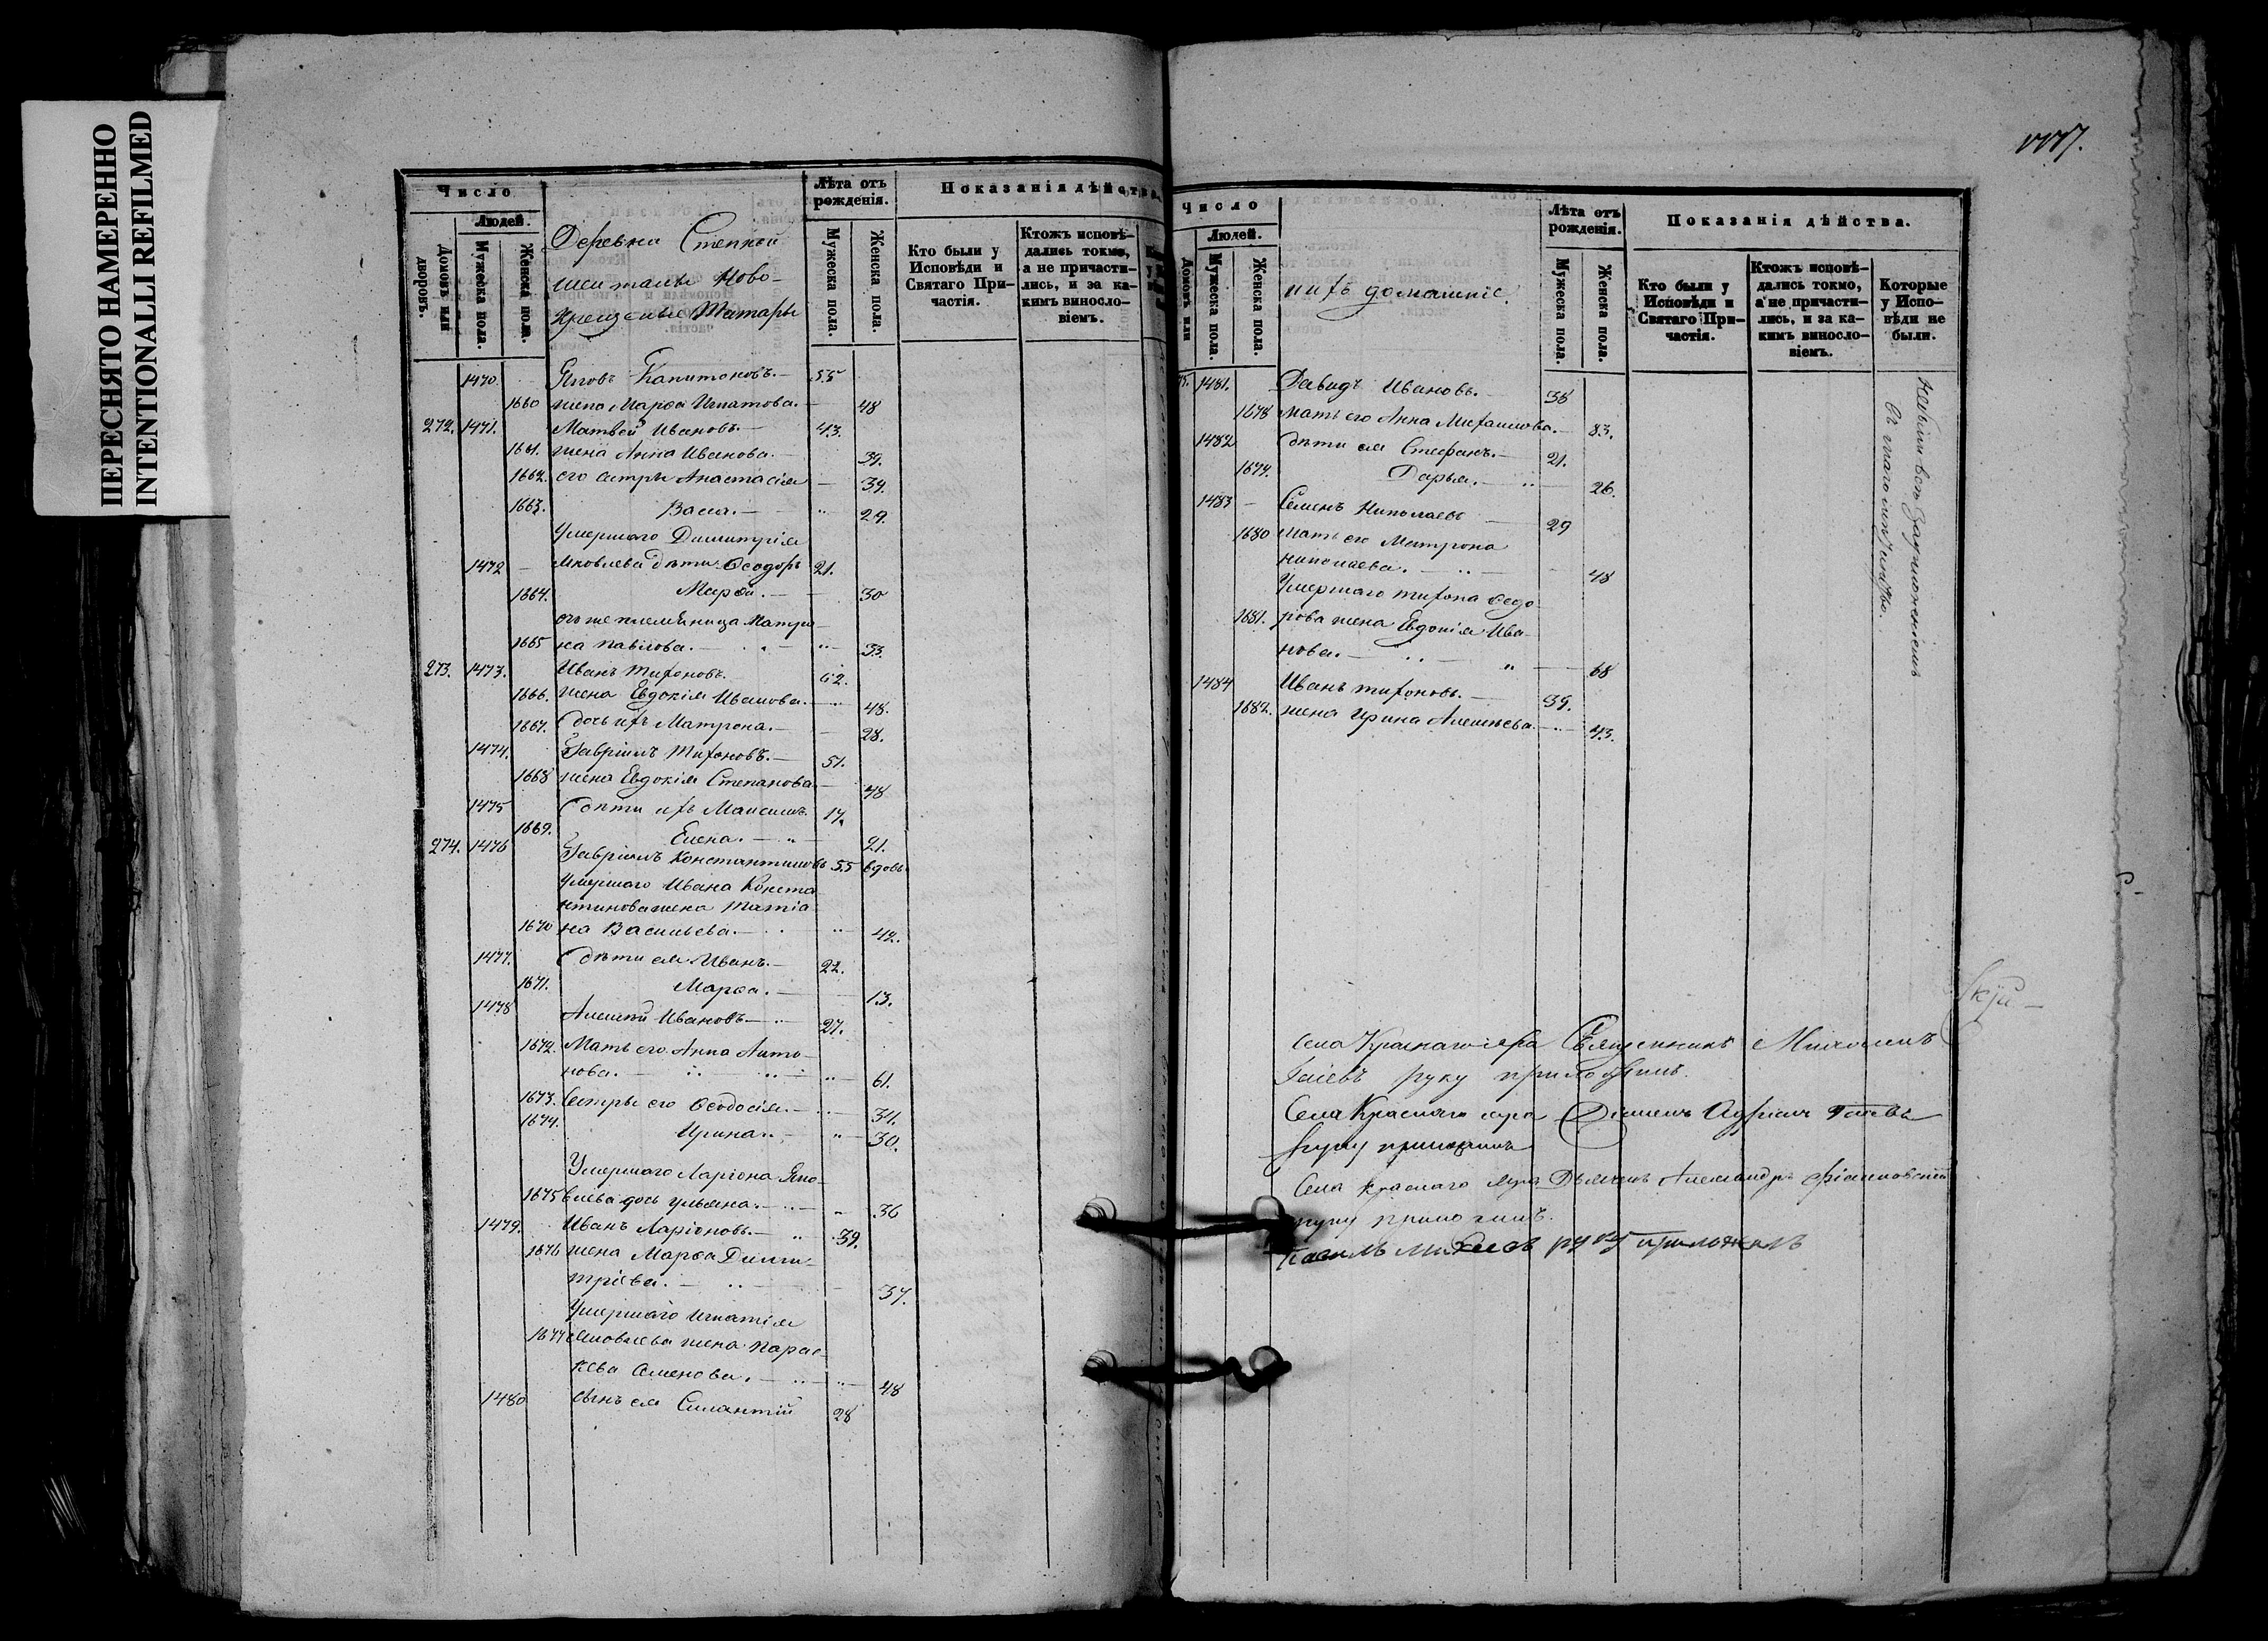 ПЕРЕСНЯТО НАМЕРЕННО
INTENTIONALLI REFILMED
Число
Людей.
Домовъ или дворовъ.
Мужеска пола.
Женска пола.
Деревни Степной
Шенталы Ново-
крещеные Татары
Лѣта отъ рожденія.
Мужеска пола.
Женска пола.
Показанія дѣйства.
Кто были у Исповѣди и Святаго При-частія.
Ктожъ исповѣ-дались токмо, а не причасти-лись, и за ка-кимъ виносло-віемъ.
1470. Яковъ Капитоновъ. 55
1660 жена Марѳа Игнатова. 48
272. 1471. Матвей Ивановъ 43.
1661. жена Анна Иванова. 39.
1662. его сестры Анастасія 34.
1663. Васса. 29.
Умершаго Димитрія
1472 Яковлева дѣти Ѳеодоръ 21.
1664. Марѳа. 30
его же племяница Матро-
1665 на Павлова. 33.
273. 1473. Иванъ Тихоновъ. 62.
1666. жена Евдокія Иванова. 48.
1667. дочь ихъ Матрона. 28.
1474. Гавріилъ Тихоновъ. 51.
1668 жена Евдокія Степанова 48
1475 дѣти ихъ Максимъ. 17.
1669. Елена. 21.
274. 1476 Гавріилъ Константиновъ 55 вдовъ
Умершаго Ивана Конста
нтинова жена Татіа
1670 на Васильева. 42.
1477. дѣти ея Иванъ. 22.
1671. Марѳа. 13.
1478 Алексѣй Ивановъ 27.
1672. Мать его Анна Анто-
нова. 61.
1673. Сестры его Ѳеодосія. 34.
1674. Ирина. 30.
Умершаго Ларіона Яко-
1675 влева дочь Ульяна. 36
1479. Иванъ Ларіоновъ. 39.
1676 жена Марѳа Дими-
тріева. 37.
Умершаго Игнатія
1677 Яковлева жена Парас-
кева Семенова. 48
1480 сынъ ея Силантій 28
Число
Людей.
Домовъ или
Мужеска пола.
Женска пола.
нихъ домашніе.
Лѣта отъ рожденія.
Мужеска пола.
Женска пола.
Показанія дѣйства.
Кто были у Исповѣди и Святаго При-частія.
Ктожъ исповѣ-дались токмо, а не причасти-лись, и за ка-кимъ виносло-віемъ.
Которые у Испо-вѣди не были.
1481. Давидъ Ивановъ. 38
1678 мать его Анна Михаилова. 83.
1482 дѣти ея Стефанъ. 21.
1679. Дарья. 26.
1483 Семенъ Николаевъ 29
1680 Мать его Матрона
Николаева. 48
Умершаго Тихона Ѳедо-
1681. рова жена Евдокія Ива-
нова. 68
1484 Иванъ Тихоновъ. 39.
1682. жена Ирина Алексѣева. 43.
Села Краснаго яра Священникъ Михаилъ
руку приложилъ.
Села Краснаго яра Діаконъ Адріанъ
руку приложилъ
Села Краснаго Яра Дьячекъ Александръ
руку приложилъ.
руку приложилъ